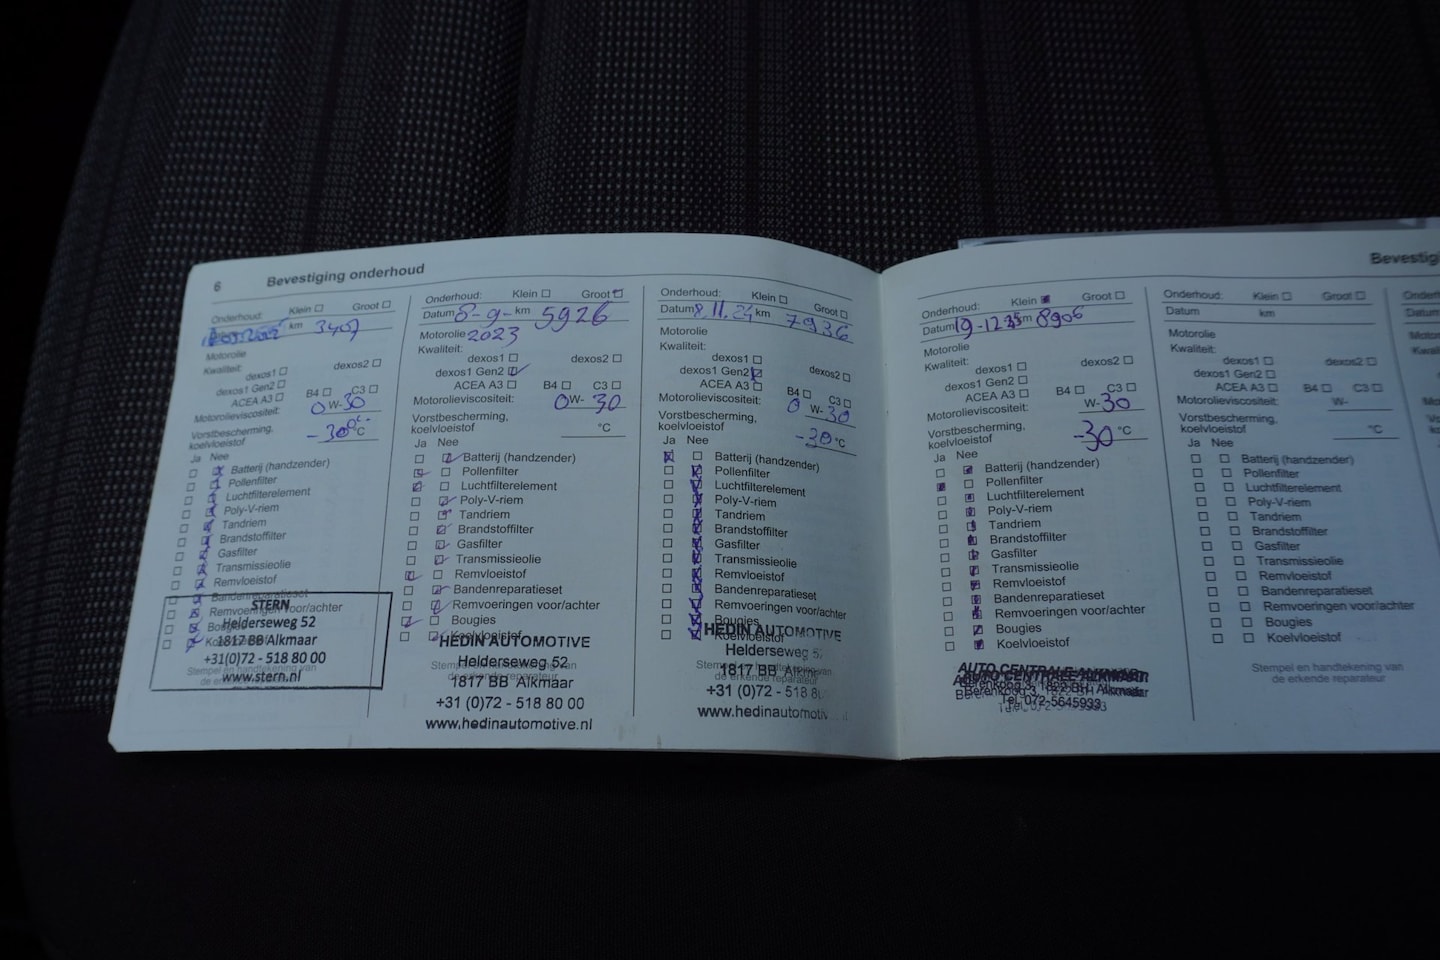 6 Bevestiging onderhoud
Onderhoud: Klein Groot
km 3407
Motorolie
Kwaliteit:
dexos1 dexos2
dexos1 Gen2
ACEA A3 B4 C3
Motorolieviscositeit: 0W-30
Vorstbescherming,
koelvloeistof -30°C
Ja Nee
Batterij (handzender)
Pollenfilter
Luchtfilterelement
Poly-V-riem
Tandriem
Brandstoffilter
Gasfilter
Transmissieolie
Remvloeistof
Bandenreparatieset
Remvoeringen voor/achter
Bougies
Koelvloeistof
STERN
Helderseweg 52
1817 BB Alkmaar
+31(0)72 - 518 80 00
www.stern.nl
Stempel en handtekening van
de erkende reparateur
Onderhoud: Klein Groot
Datum 8-9- km 5926
Motorolie 2023
Kwaliteit:
dexos1 dexos2
dexos1 Gen2
ACEA A3 B4 C3
Motorolieviscositeit: 0W-30
Vorstbescherming,
koelvloeistof °C
Ja Nee
Batterij (handzender)
Pollenfilter
Luchtfilterelement
Poly-V-riem
Tandriem
Brandstoffilter
Gasfilter
Transmissieolie
Remvloeistof
Bandenreparatieset
Remvoeringen voor/achter
Bougies
Koelvloeistof
HEDIN AUTOMOTIVE
Helderseweg 52
1817 BB Alkmaar
+31 (0)72 - 518 80 00
www.hedinautomotive.nl
Stempel en handtekening van
de erkende reparateur
Onderhoud: Klein Groot
Datum 8.11.24 km 7936
Motorolie
Kwaliteit:
dexos1 dexos2
dexos1 Gen2
ACEA A3 B4 C3
Motorolieviscositeit: 0W-30
Vorstbescherming,
koelvloeistof -30°C
Ja Nee
Batterij (handzender)
Pollenfilter
Luchtfilterelement
Poly-V-riem
Tandriem
Brandstoffilter
Gasfilter
Transmissieolie
Remvloeistof
Bandenreparatieset
Remvoeringen voor/achter
Bougies
Koelvloeistof
HEDIN AUTOMOTIVE
Helderseweg 5
1817 BB Alkmaa
+31 (0)72 - 518 8
www.hedinautomotiv
Bevestigi
Onderhoud: Klein Groot
Datum 19-12-25 km 8906
Motorolie
Kwaliteit:
dexos1 dexos2
dexos1 Gen2
ACEA A3 B4 C3
Motorolieviscositeit: W-30
Vorstbescherming,
koelvloeistof -30°C
Ja Nee
Batterij (handzender)
Pollenfilter
Luchtfilterelement
Poly-V-riem
Tandriem
Brandstoffilter
Gasfilter
Transmissieolie
Remvloeistof
Bandenreparatieset
Remvoeringen voor/achter
Bougies
Koelvloeistof
AUTO CENTRALE ALKMAAR
Berenkoog 3, 1822 BH Alkmaar
Tel. 072-5645933
Onderhoud: Klein Groot
Datum km
Motorolie
Kwaliteit:
dexos1 dexos2
dexos1 Gen2
ACEA A3 B4 C3
Motorolieviscositeit: W-
Vorstbescherming,
koelvloeistof °C
Ja Nee
Batterij (handzender)
Pollenfilter
Luchtfilterelement
Poly-V-riem
Tandriem
Brandstoffilter
Gasfilter
Transmissieolie
Remvloeistof
Bandenreparatieset
Remvoeringen voor/achter
Bougies
Koelvloeistof
Stempel en handtekening van
de erkende reparateur